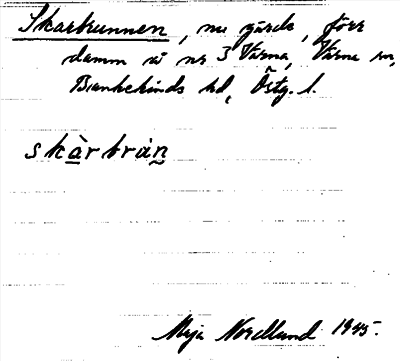 Skarbrunnen, nu gärde, förr
damm å nr 3 Värna, Värna sn,
Bankekinds hd, Östg. l.
skàrbràn
Maja Nordlund 1945.